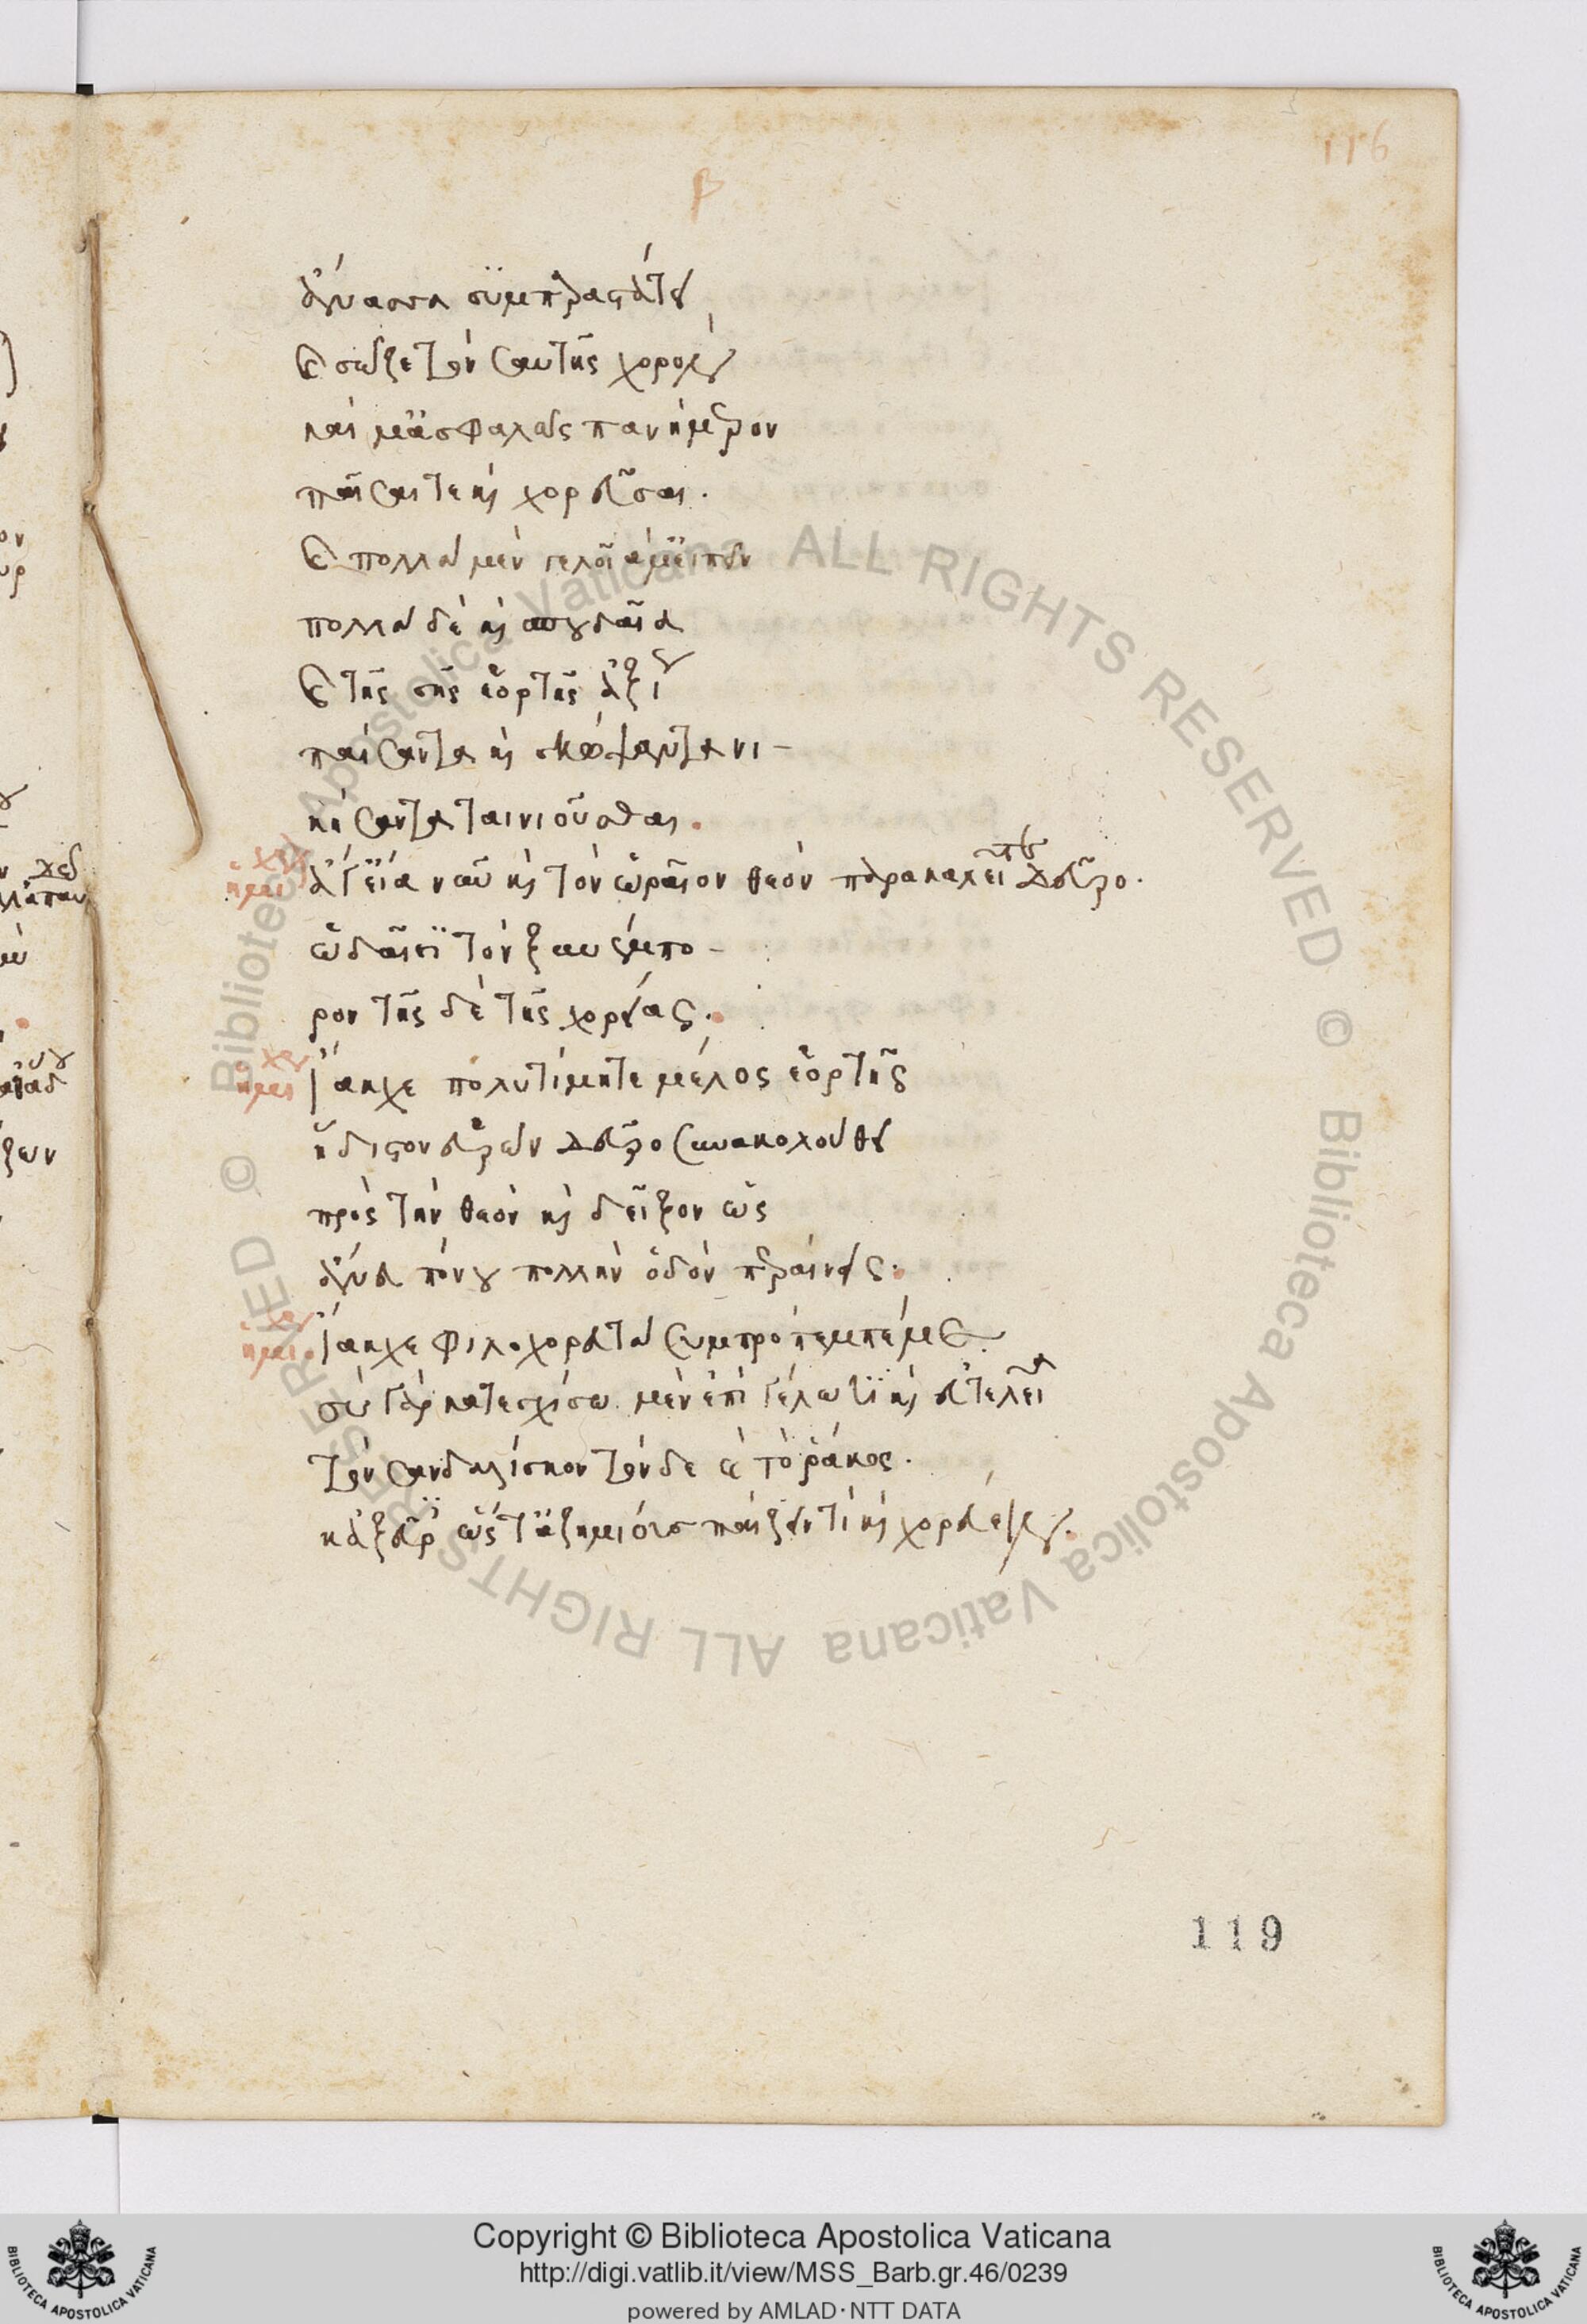 116
β
ἄνασσα συμπαραστάτει
καὶ σῶζε τὸν σαυτῆς χορὸν
καί μ' ἀσφαλῶς πανήμερον
παῖσαί τε καὶ χορεῦσαι.
καὶ πολλὰ μὲν γελοῖά μ' εἰπεῖν
πολλὰ δὲ καὶ σπουδαῖα
καὶ τῆς σῆς ἑορτῆς ἀξίως
παίσαντα καὶ σκώψαντα νι-
κήσαντα ταινιοῦσθαι.
ἡμιχ
ἄγ' εἶα νῦν καὶ τὸν ὡραῖον θεὸν παρακαλεῖτε δεῦρο.
ᾠδαῖσι τὸν ξυνέμπο-
ρον τῆσδε τῆς χορείας.
ἡμιχ
Ἴακχε πολυτίμητε μέλος ἑορτῆς
ἥδιστον εὑρὼν δεῦρο συνακολούθει
πρὸς τὴν θεὸν καὶ δεῖξον ὡς
ἄνευ πόνου πολλὴν ὁδὸν περαίνεις.
ἡμιχ
Ἴακχε φιλοχορευτὰ συμπρόπεμπέ με
σὺ γὰρ κατεσχίσω μὲν ἐπὶ γέλωτι καὶ εὐτελείᾳ
τὸν σανδαλίσκον τόνδε καὶ τὸ ῥάκος.
κἀξεῦρες ὥστ' ἀζημίους παίζειν τι καὶ χορεύειν.
119
ALL RIGHTS RESERVED © Biblioteca Apostolica Vaticana
ALL RIGHTS RESERVED © Biblioteca Apostolica Vaticana
BIBLIOTECA APOSTOLICA VATICANA
Copyright © Biblioteca Apostolica Vaticana
http://digi.vatlib.it/view/MSS_Barb.gr.46/0239
powered by AMLAD·NTT DATA
BIBLIOTECA APOSTOLICA VATICANA